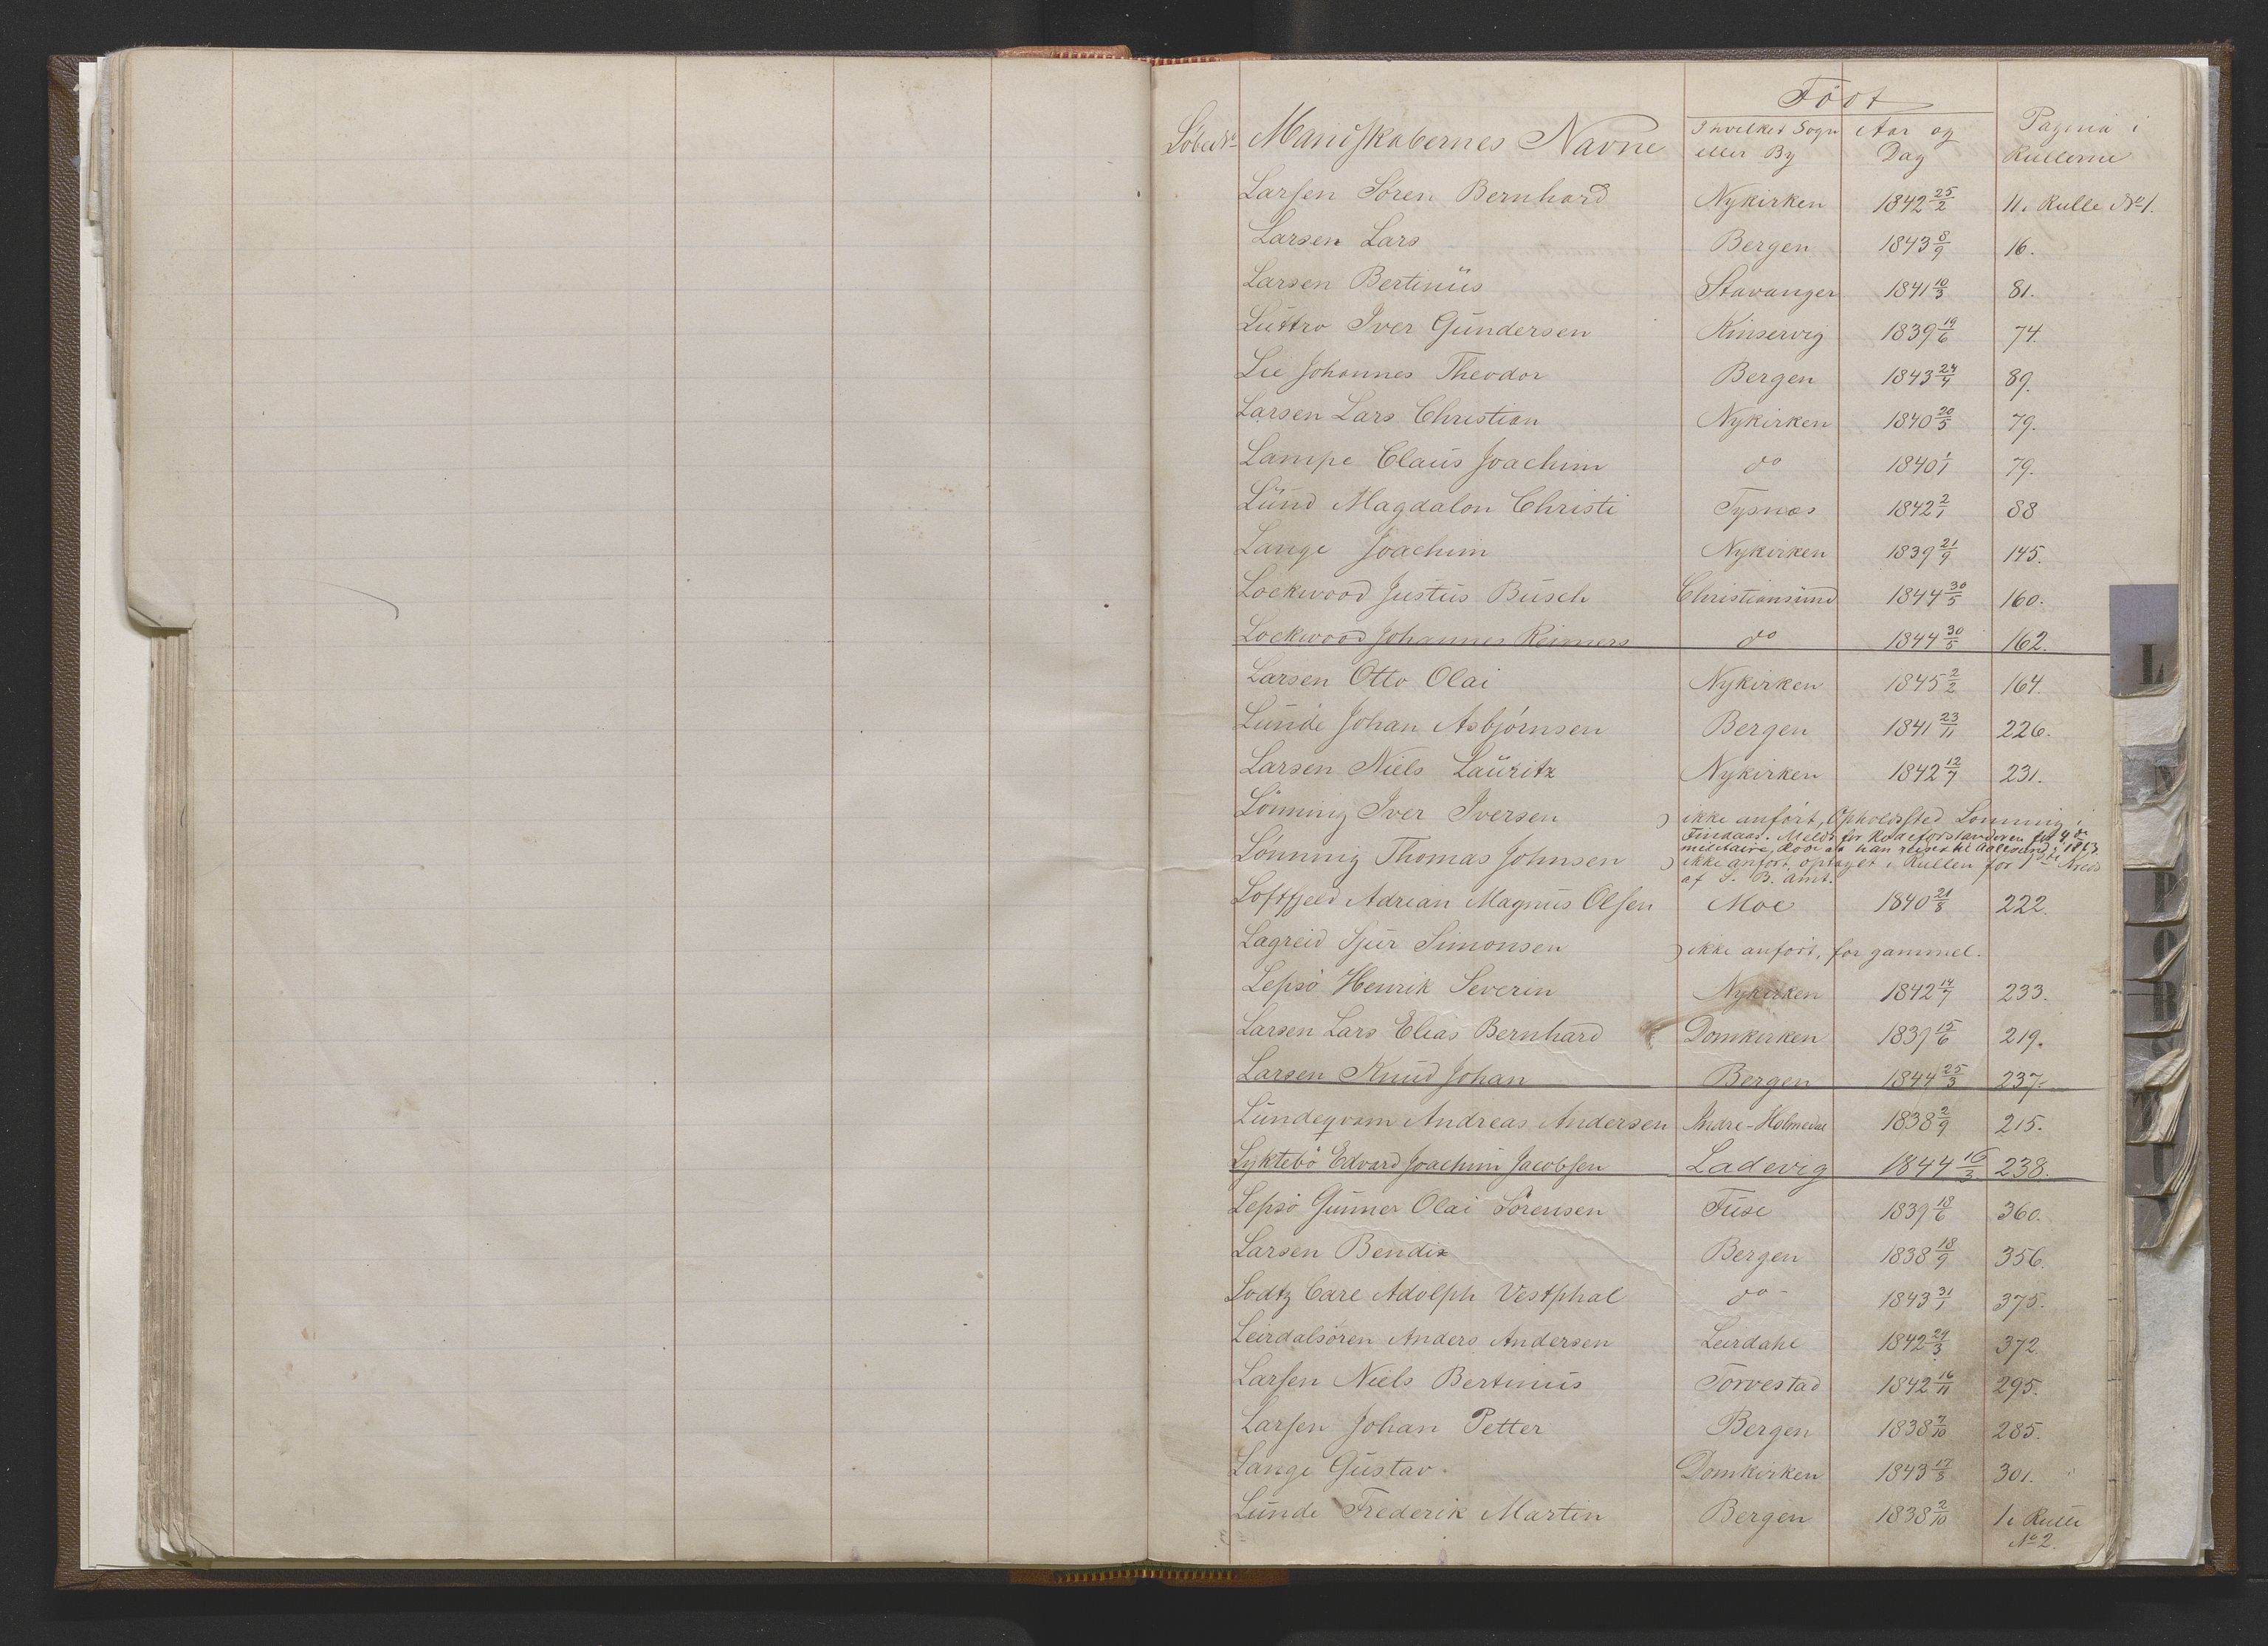 Födt
LöbeNo Mandskabernes Navne I hvilket Sogn eller By Aar og Dag Pagina i Rullerne
Larsen Sören Bernhard Nykirken 1842 25/2 11. Rulle No 1.
Larsen Lars Bergen 1843 8/9 16.
Larsen Bertinus Stavanger 1841 10/3 81.
Luttro Iver Gundersen Kinservig 1839 19/6 74.
Lie Johannes Theodor Bergen 1843 24/4 89.
Larsen Lars Christian Nykirken 1840 20/5 79.
Lampe Claus Joachim do 1840 1/1 79.
Lund Magdalon Christi Tysnæs 1842 2/1 88
Lange Joachim Nykirken 1839 21/9 145.
Lockwood Justus Busch Christiansund 1844 30/5 160.
Lockwood Johannes Reimers do 1844 30/5 162.
Larsen Otto Olai Nykirken 1845 2/2 164.
Lunde Johan Asbjörnsen Bergen 1841 23/11 226.
Larsen Niels Lauritz Nykirken 1842 12/7 231.
Lönning Iver Iversen ) ikke anfört, Opholdssted Lönning i
Findaas. Meldt for Rodeforstanderen
militaire, at han reiste til Aalesund i 1863.
Lönning Thomas Johnsen ) ikke anfört, optaget i Rullen for 1ste Kreds
af S. B. Amt.
Loftfjeld Adrian Magnus Olsen Moe 1840 21/8 222.
Lagreid Sjur Simonsen ) ikke anfört, for gammel.
Lepsö Henrik Severin Nykirken 1842 14/7 233.
Larsen Lars Elias Bernhard Domkirken 1839 15/6 219.
Larsen Knud Johan Bergen 1844 25/3 237.
Lundeqvam Andreas Andersen Indre-Holmedal 1838 2/9 215.
Lyktebö Edvard Joachim Jacobsen Ladevig 1844 16/3 238.
Lepsö Gunner Olai Sörensen Fuse 1839 18/6 360.
Larsen Bendix Bergen 1838 18/9 356.
Lodtz Carl Adolph Vestphal do 1843 31/1 375.
Leirdalsören Anders Andersen Leirdahl 1842 29/3 372
Larsen Niels Bertinius Torvestad 1842 16/11 295.
Larsen Johan Petter Bergen 1838 7/10 285.
Lange Gustav. Domkirken 1843 17/8 301.
Lunde Frederik Martin Bergen 1838 2/10 1. Rulle
No 2.
L
N
P
O
R